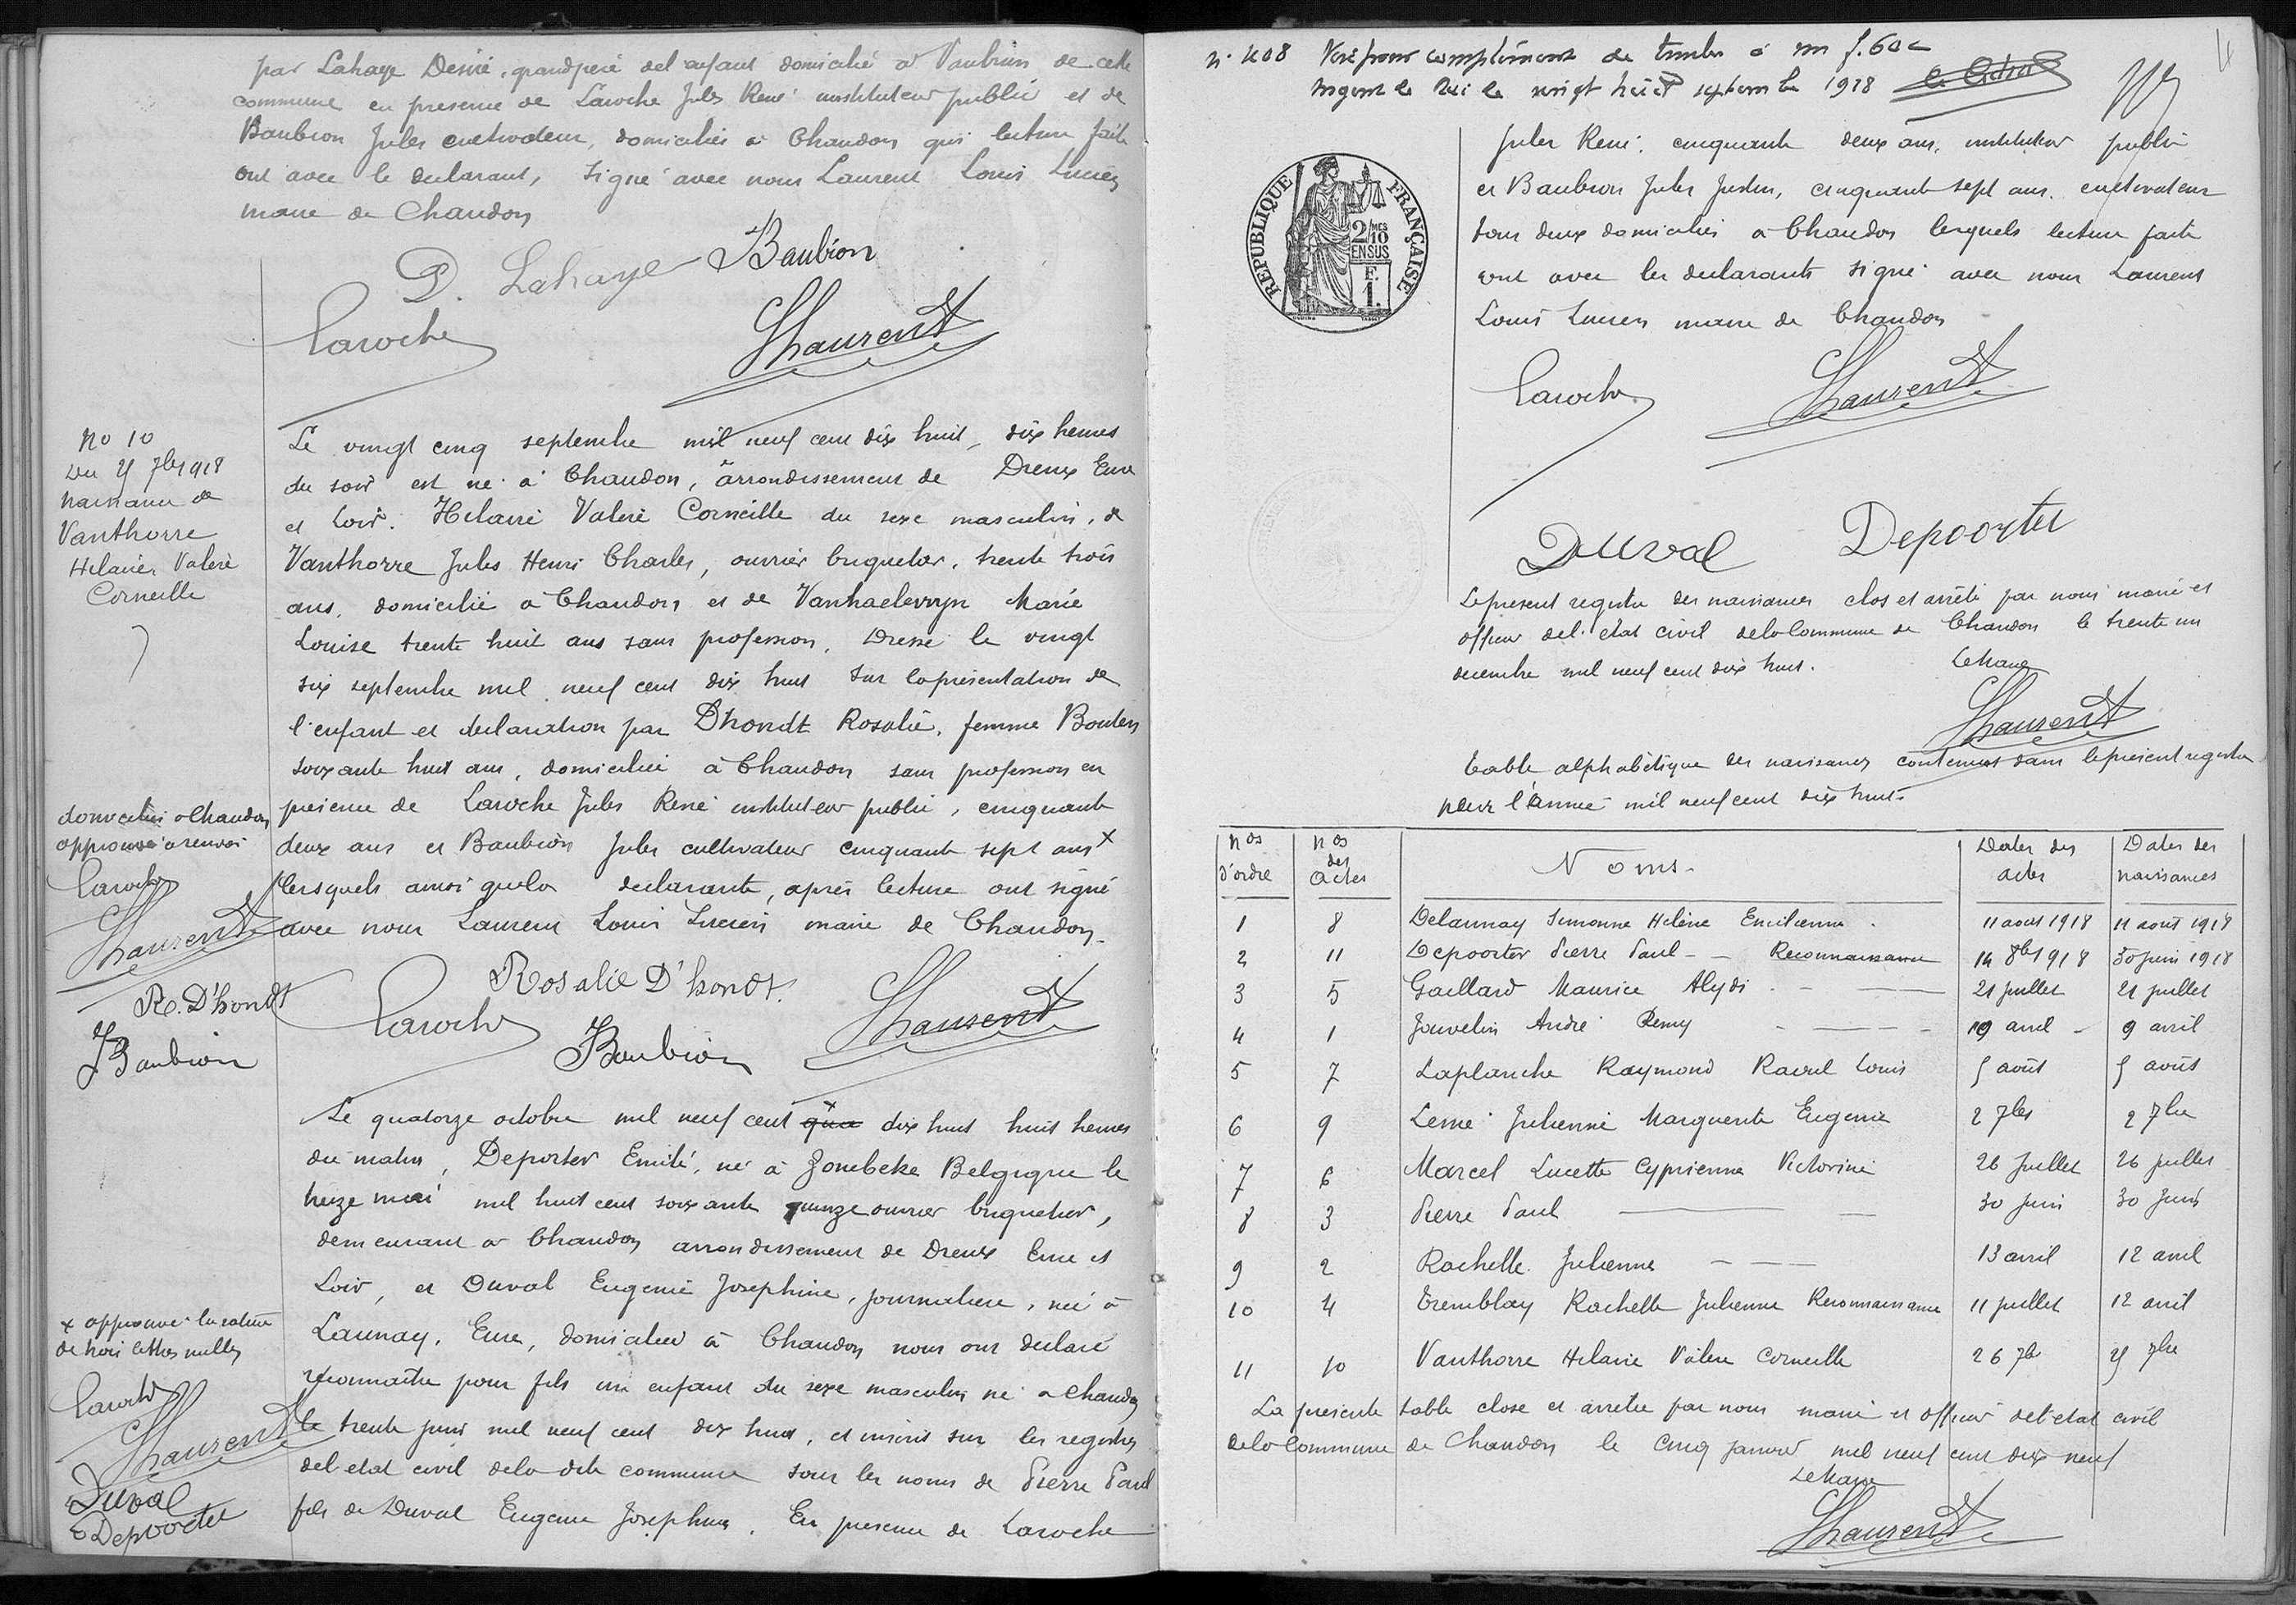 par Lahaye Desiré, grandpere del enfant domicilié à Vaubrun de cette
commune en presence de Laroche Jules René instituteur public et de
Baubion Jules cultivateur, domiciliés à Chaudon qui lecture faite
ont avec le declarant, signé avec nous Laurent Louis Lucien
maire de Chaudon
D. Lahaye Baubion
Laroche LLaurent
No 10
Du 25 7bre 1918
naissance de
Vanthorre
Hilaire Valere
Corneille
Le vingt cinq septembre mil neuf cent dix huit, dix heures
du soir est né à Chaudon, arrondissement de Dreux Eure
et Loir. Hilaire Valere Corneille du sexe masculin, de
Vanthorre Jules Henri Charles, ouvrier briquetier, trente trois
ans, domicilié à Chaudon et de Vanhaelewyn Marie
Louise trente huit ans sans profession. Dressé le vingt
six septembre mil neuf cent dix huit sur la présentation de
l'enfant et declaration par Dhondt Rosalie, femme Bouten
soixante huit ans, domiciliée à Chaudon sans profession en
présence de Laroche Jules René instituteur public, cinquante
deux ans et Baubion Jules cultivateur cinquante sept ans x
lesquels ainsi quela declarante, après lecture ont signé
avec nous Laurent Louis Lucien maire de Chaudon.
domiciliés à Chaudon
approuvé renvoi
Laroche
LLaurent
Ro. D'hondt
Baubion
Rosalie D'hondt.
Laroche Baubion LLaurent
Le quatorze octobre mil neuf cent qua x dix huit huit heures
du matin, Deporter Emile, né à Zonebeke Belgique le
treize mai mil huit cent soixante quinze ouvrier briquetier,
demeurant à Chaudon arrondissement de Dreux Eure et
Loir, et Duval Eugenie Josephine, journaliere, née à
Launay, Eure, domiciliée à Chaudon nous ont declaré
reconnaitre pour fils un enfant du sexe masculin né à Chaudon
le trente juin mil neuf cent dix huit, et inscrit sur les registres
del etat civil dela dite commune sous les noms de Pierre Paul
fils de Duval Eugenie Josephine. En presence de Laroche
x approuvé la rature
de trois lettres nulles
Laroche
LLaurent
Duval
E Depoorter
n° 408 Visé pour complément de timbre à un f. 60 c
Nogent le Roi le vingt huit septembre 1918
4
REPUBLIQUE FRANÇAISE
2/10 MES
EN SUS
F.
1.
Jules René, cinquante deux ans, instituteur public
et Baubion Jules Justin, cinquante sept ans, cultivateur
tous deux domiciliés à Chaudon lesquels lecture faite
ont avec les declarants signé avec nous Laurent
Louis Lucien maire de Chaudon
Laroche LLaurent
Duval Depoorter
Le present registre des naissances clos et arrêté par nous maire et
officier del'etat civil dela Commune de Chaudon le trente un
decembre mil neuf cent dix huit.
Le Maire
LLaurent
Table alphabétique des naissances contenues dans le présent registre
pour l'année mil neuf cent dix huit
Nos d'ordre Nos des actes Noms. Dates des actes Dates des naissances
1 8 Delaunay Simonne Helène Emilienne 11 aout 1918 11 août 1918
2 11 Depoorter Pierre Paul - - Reconnaissance 14 8bre 1918 30 juin 1918
3 5 Gaillard Maurice Alydi 21 juillet 21 juillet
4 1 Jouvelin André Remy 10 avril 9 avril
5 7 Laplanche Raymond Raoul Louis 5 août 5 août
6 9 Lemé Julienne Marguerite Eugenie 2 7bre 2 7bre
7 6 Marcel Lucette Cyprienne Victorine 26 juillet 26 juillet
8 3 Pierre Paul 30 juin 30 juin
9 2 Rachelle Julienne 13 avril 12 avril
10 4 Tremblay Rachelle Julienne Reconnaissance 11 juillet 12 avril
11 10 Vanthorre Hilaire Valere Corneille 26 7bre 25 7bre
La presente table close et arretée par nous maire et officier del'etat civil
dela Commune de Chaudon le cinq janvier mil neuf cent dix neuf
Le Maire
LLaurent